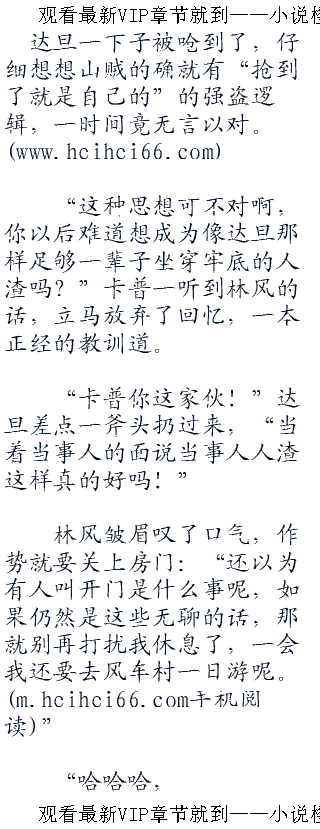 观看最新VIP章节就到——小说
达旦一下子被呛到了，仔
细想想山贼的确就有“抢到
了就是自己的”的强盗逻
辑，一时间竟无言以对。
(www.hcihci66.com)
“这种思想可不对啊，
你以后难道想成为像达旦那
样足够一辈子坐穿牢底的人
渣吗？”卡普一听到林风的
话，立马放弃了回忆，一本
正经的教训道。
“卡普你这家伙！”达
旦差点一斧头扔过来，“当
着当事人的面说当事人人渣
这样真的好吗！”
林风皱眉叹了口气，作
势就要关上房门：“还以为
有人叫开门是什么事呢，如
果仍然是这些无聊的话，那
就别再打扰我休息了，一会
我还要去风车村一日游呢。
(m.hcihci66.com手机阅
读)”
“哈哈哈，
观看最新VIP章节就到——小说